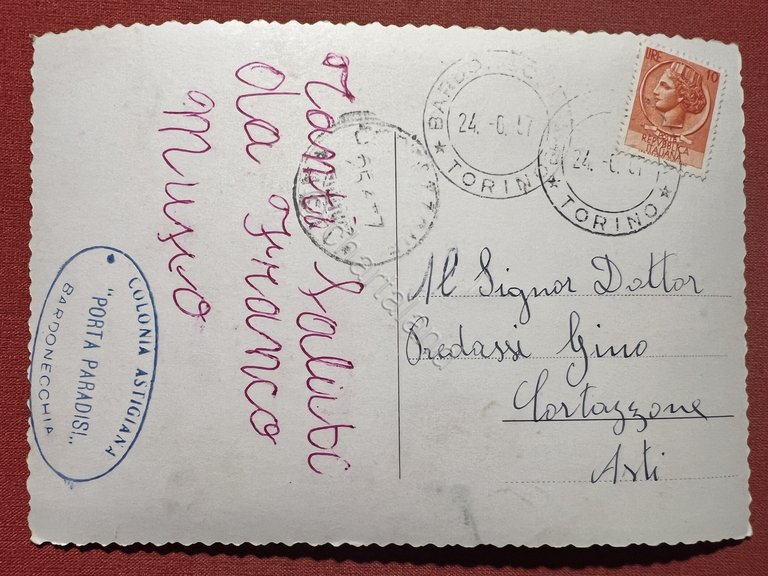 Tanti Saluti
da Franco
Musso
COLONIA ASTIGIANA
"PORTA PARADISI"
BARDONECCHIA
TORINO
24.-6.57
TORINO
24.-6.57
LIRE 10
REPUBBLICA
ITALIANA
Al Signor Dottor
Predassi Gino
Cortazzone
Asti